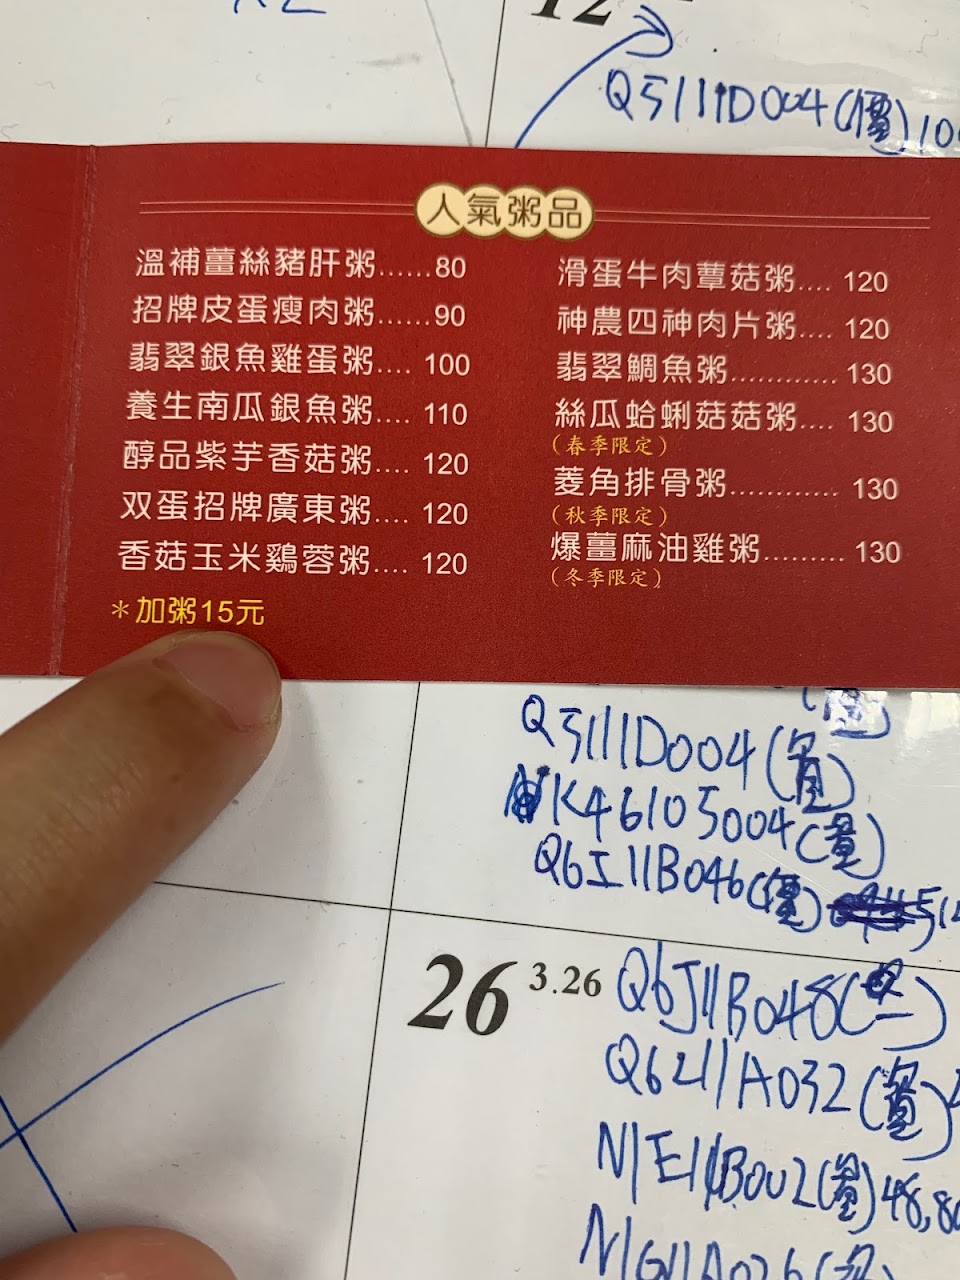 12
Q5111D004(價)10
人氣粥品
溫補薑絲豬肝粥......80
招牌皮蛋瘦肉粥......90
翡翠銀魚雞蛋粥.... 100
養生南瓜銀魚粥.... 110
醇品紫芋香菇粥.... 120
双蛋招牌廣東粥.... 120
香菇玉米鷄蓉粥.... 120
＊加粥15元
滑蛋牛肉蕈菇粥.... 120
神農四神肉片粥.... 120
翡翠鯛魚粥............ 130
絲瓜蛤蜊菇菇粥.... 130
(春季限定)
菱角排骨粥............ 130
(秋季限定)
爆薑麻油雞粥......... 130
(冬季限定)
Q5111D004
K46105004
Q6I11B046(價)
26 3.26
Q6J11B048
Q6211A032
N1E11B002
48,8
N1G11A026